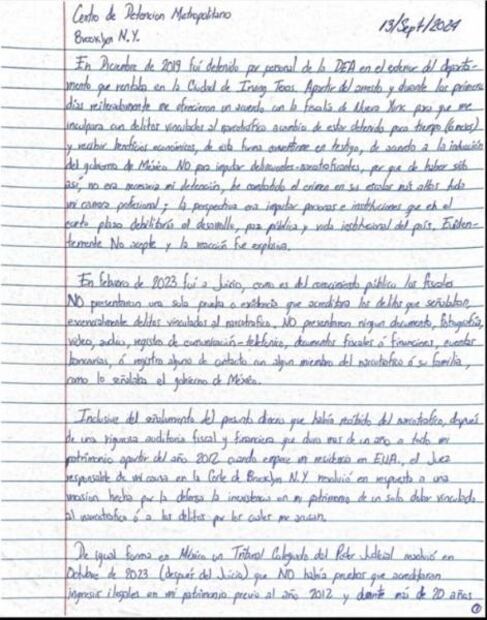 Centro de Detencion Metropolitano
Brooklyn N.Y.
13/Sept/2024
En Diciembre de 2019 fui detenido por personal de la DEA en el exterior del departa-
mento que rentaba en la Ciudad de Irving Texas. Apartir del arresto y durante los primeros
días reiteradamente me ofrecieron un acuerdo con la fiscalía de Nueva York para que me
inculpara con delitos vinculados al narcotrafico acambio de estar detenido poco tiempo (6 meses)
y recibir beneficios económicos, de esta forma convertirme en testigo, de acuerdo a la
del gobierno de México NO para imputar delincuentes-narcotraficantes, por que de haber sido
así, no era necesaria mi detención, he combatido el crimen en su escalas más altas toda
mi carrera profesional; la perspectiva era imputar personas e instituciones que en el
corto plazo debilitaría el desarrollo, paz pública y vida institucional del país. Eviden-
temente No acepte y la reacción fue explosiva.
En febrero de 2023 fui a Juicio, como es del conocimiento público los fiscales
NO presentaron una sola prueba o evidencia que acreditara los delitos que señalaban,
esencialmente delitos vinculados al narcotrafico. NO presentaron ningun documento, fotografía,
video, audio, registro de comunicación-telefonico, documentos fiscales ó financieros, cuentas
bancarias, ó registro alguno de contacto con algun miembro del narcotrafico ó su familia,
como lo señalaba el gobierno de México.
Inclusive del señalamiento del presunto dinero que había recibido del narcotrafico, después
de una rigurosa auditoria fiscal y financiera que duro mas de un año a todo mi
patrimonio apartir del año 2012 cuando empece mi residencia en EUA., el Juez
responsable de mi causa en la Corte de Brooklyn N.Y resolvió en respuesta a una
mocion hecha por la defensa la inexistencia en mi patrimonio de un solo dolar vinculado
al narcotrafico ó a los delitos por los cuales me acusan.
De igual forma en México un Tribunal Colegiado del Poder Judicial resolvió en
Octubre de 2023 (después del Juicio) que NO había pruebas que acreditaran
ingresos ilegales en mi patrimonio previo al año 2012 y durante más de 20 años
1